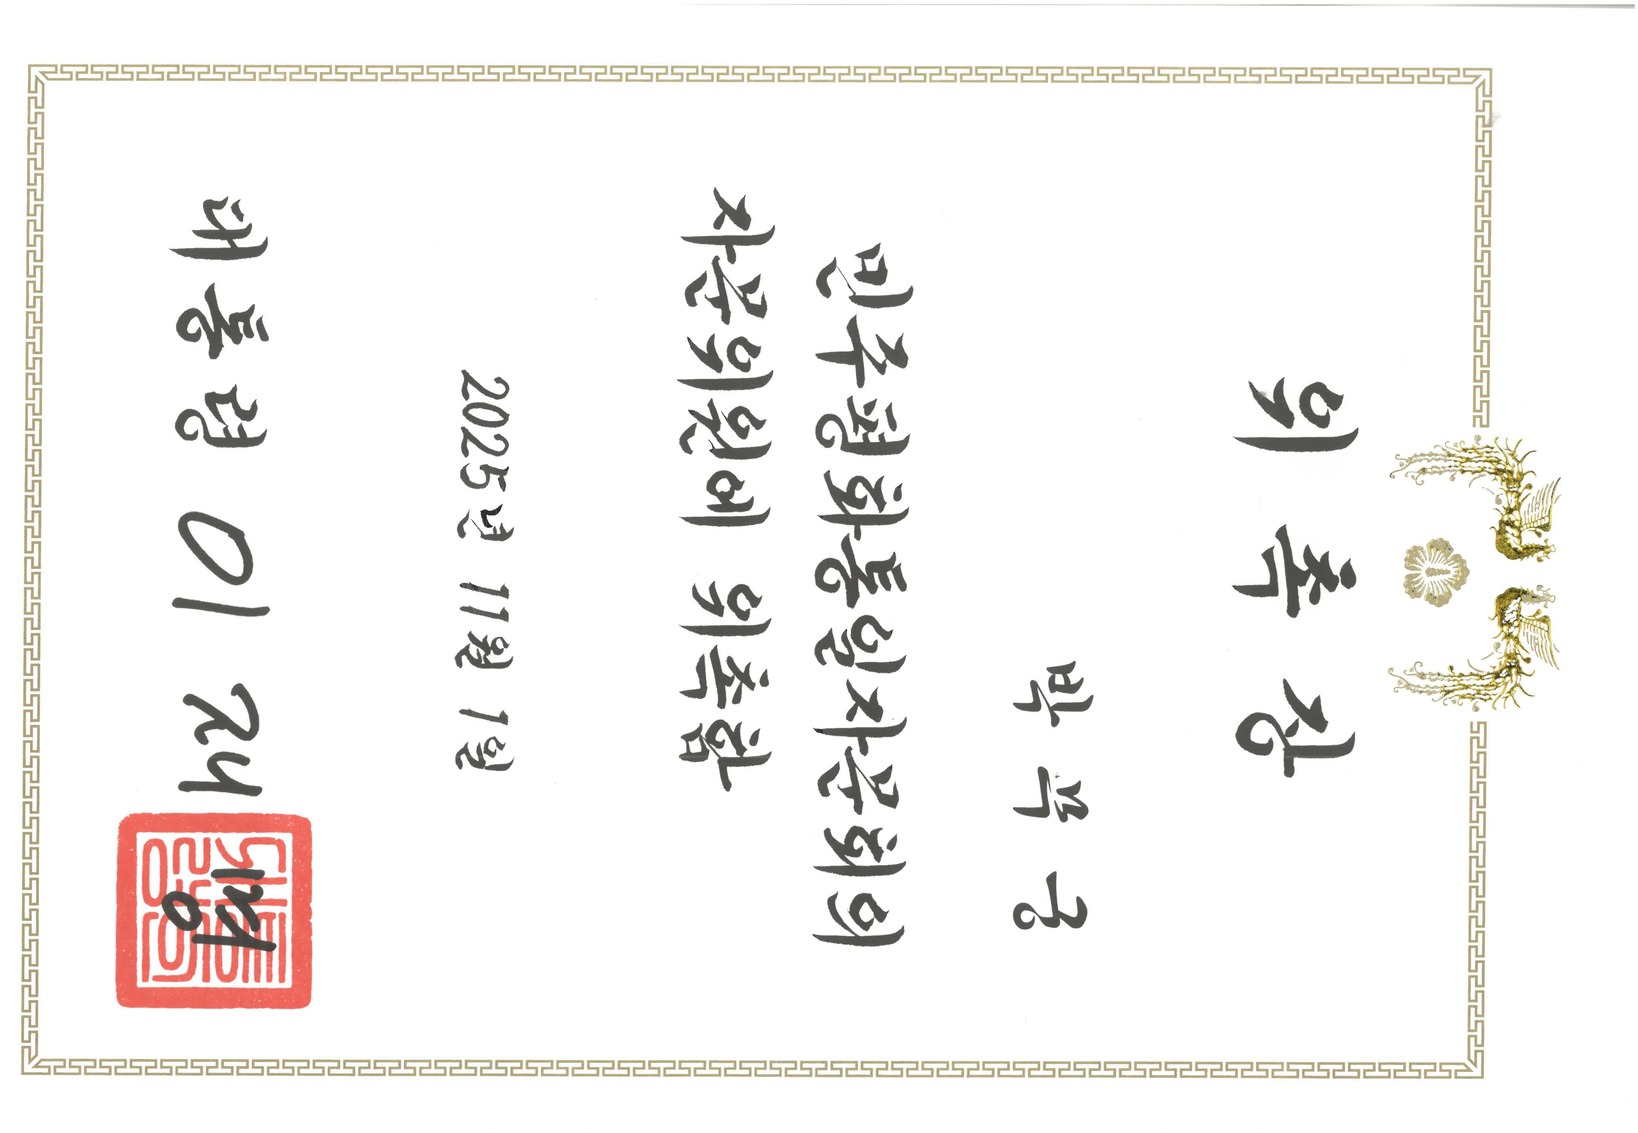 위 촉 장
박 궁
민주평화통일자문회의
자문위원에 위촉함
2025년 11월 1일
대통령 이재명
대통령인